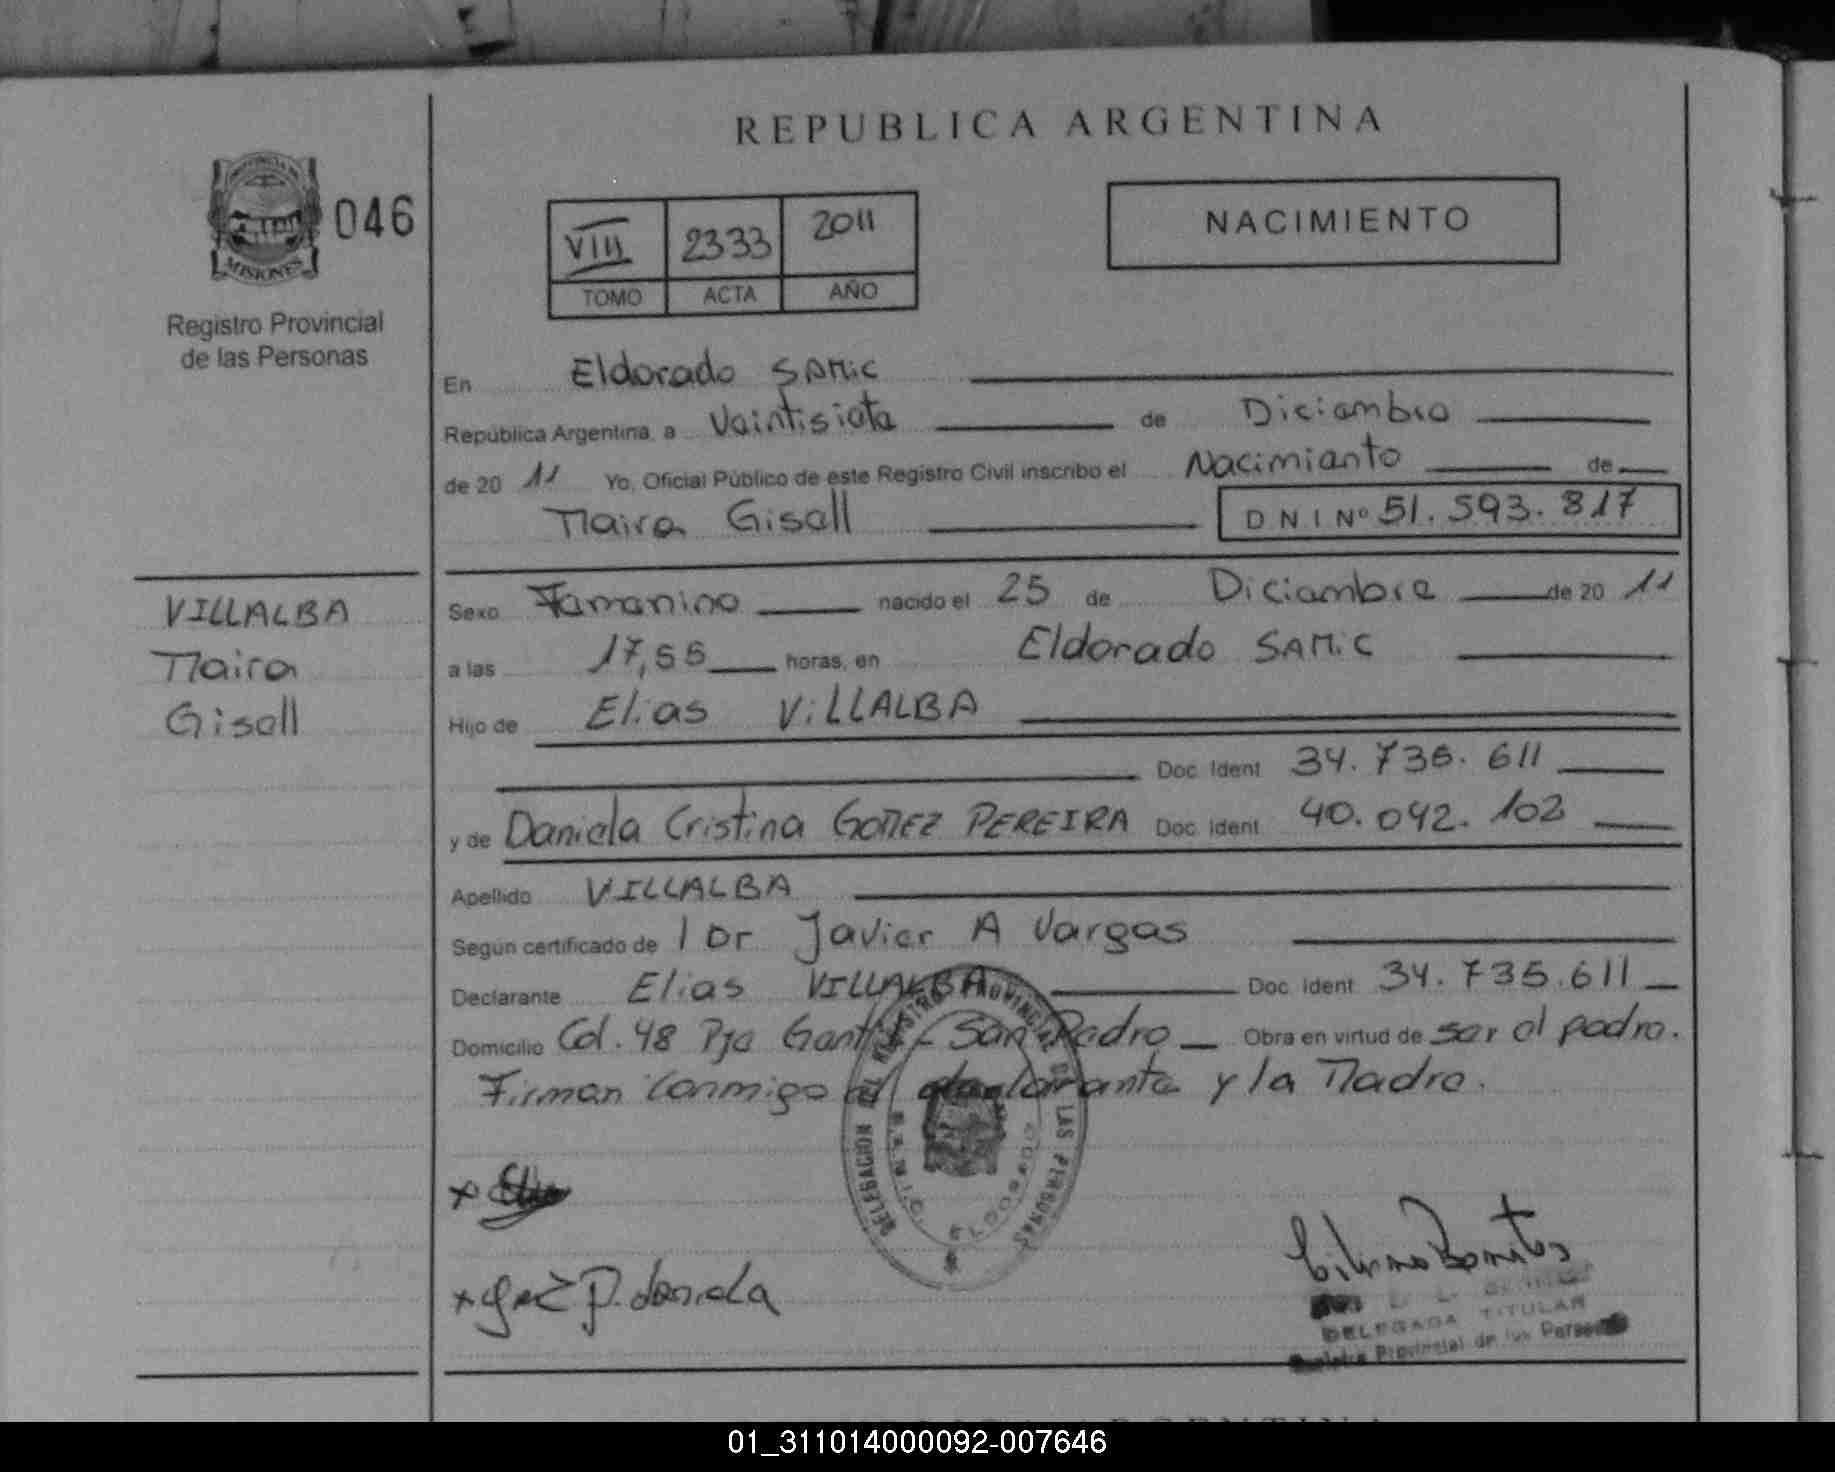 REPUBLICA ARGENTINA
PROVINCIA DE
MISIONES
046
Registro Provincial
de las Personas
VIII 2333 2011
TOMO ACTA AÑO
NACIMIENTO
En Eldorado SAMIC
República Argentina, a Veintisiete de Diciembre
de 20 11 Yo, Oficial Público de este Registro Civil inscribo el Nacimiento de
Maira Gisell DNI Nº 51.593.817
VILLALBA
Maira
Gisell
Sexo Femenino nacido el 25 de Diciembre de 20 11
a las 17,55 horas, en Eldorado SAMIC
Hijo de Elias VILLALBA
Doc. Ident. 34.735.611
y de Daniela Cristina GOMEZ PEREIRA Doc. Ident. 40.042.102
Apellido VILLALBA
Según certificado de Dr Javier A Vargas
Declarante Elias VILLALBA Doc. Ident. 34.735.611
Domicilio Col. 48 Pje - San Pedro Obra en virtud de ser el padre.
Firman conmigo el declarante y la Madre.
DELEGACION DEL REGISTRO PROVINCIAL DE LAS PERSONAS
S.A.M.I.C. ELDORADO
P. daniela
DELEGADA TITULAR
Registro Provincial de las Personas
01_311014000092-007646